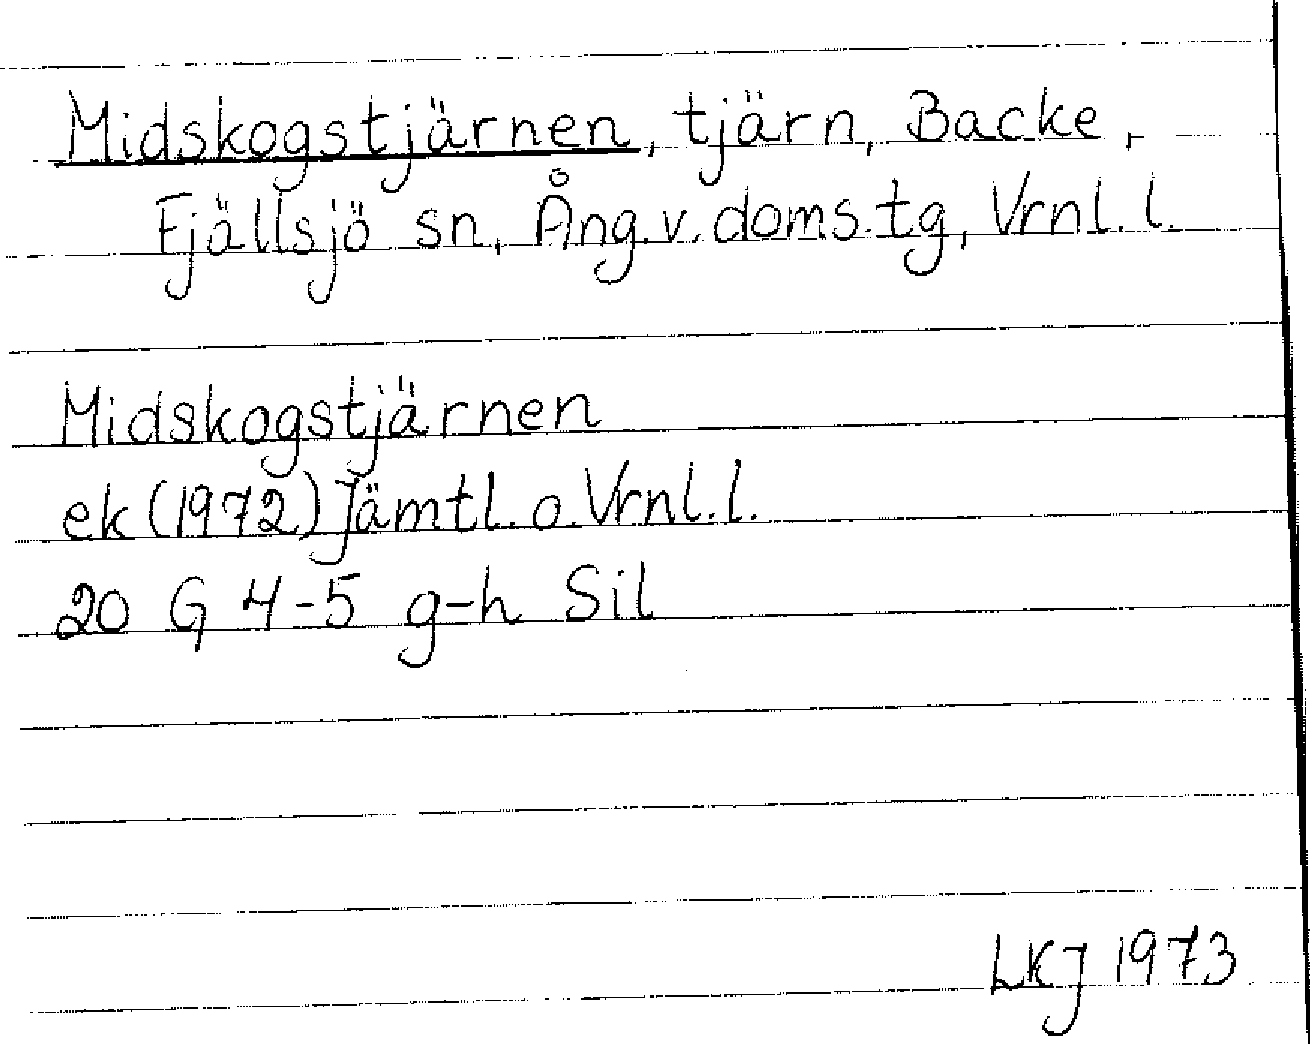 Midskogstjärnen, tjärn, Backe,
Fjällsjö sn, Ång.v.doms.tg, Vrnl.l.
Midskogstjärnen
ek (1972) Jämtl.o.Vrnl.l.
20 G 4-5 g-h Sil
LKJ 1973